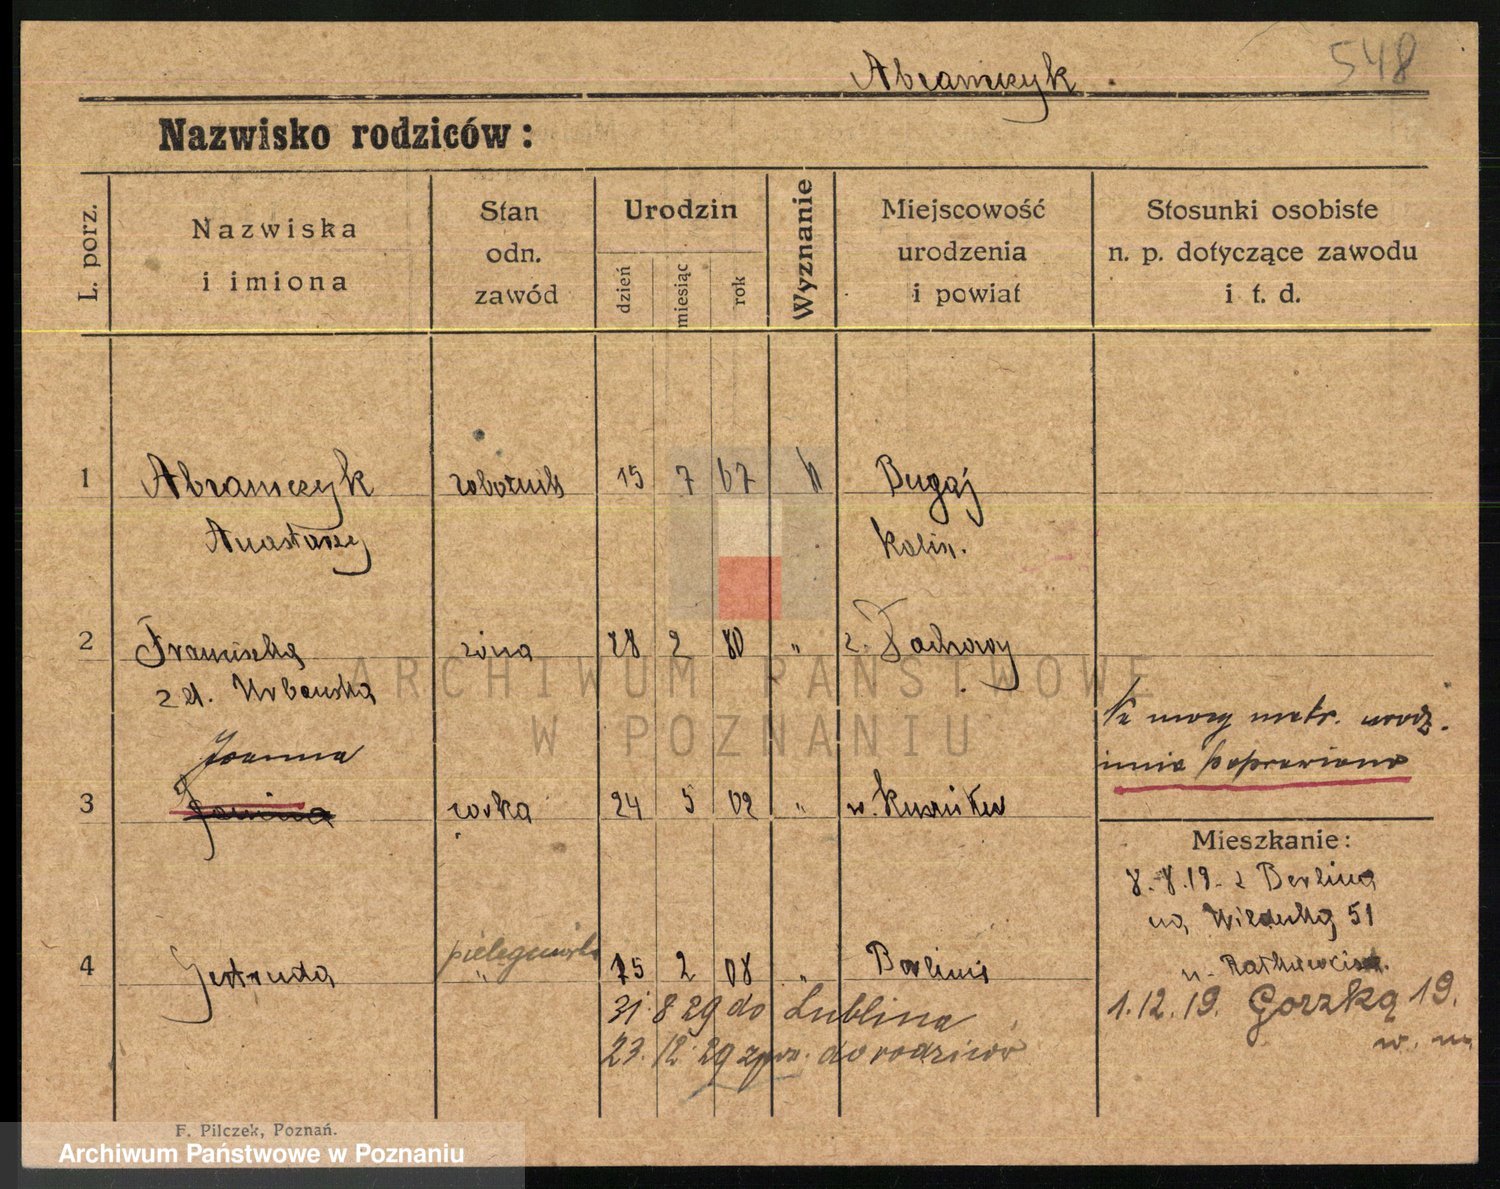 548
Abramczyk.
Nazwisko rodziców:
L. porz.
Nazwiska
i imiona
Stan
odn.
zawód
Urodzin
dzień
miesiąc
rok
Wyznanie
Miejscowość
urodzenia
i powiat
Stosunki osobiste
n. p. dotyczące zawodu
i t. d.
1 Abramczyk robotnik 15 7 67 k Bugaj
Anastazy Kolin.
2 Franciszka żona 28 2 80 „
z d. Urbańska
Na mocy metr. urodz.
imię poprawiono
Joanna
3 Janina córka 24 5 02 „ w.
Mieszkanie:
8.8.19. z Berlina
na 51
u.
pielęgniarka
4 Gertruda „ 15 2 08 „ Berlinie
31 8 29 do Lublina
1.12.19. Gorzką 19.
w. m
23.12.29 do rodziców
F. Pilczek, Poznań.
ARCHIWUM PAŃSTWOWE
W POZNANIU
Archiwum Państwowe w Poznaniu